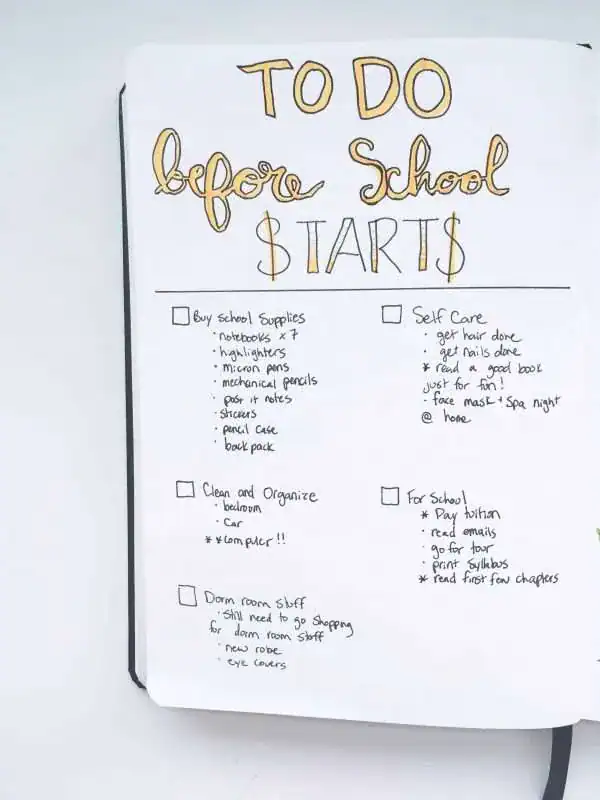 TO DO
before School
STARTS
Buy school supplies
· notebooks x 7
· highlighters
· micron pens
· mechanical pencils
· post it notes
· stickers
· pencil case
· back pack
Clean and Organize
· bedroom
· car
* * computer !!
Dorm room stuff
· Still need to go shopping
for dorm room stuff
· new robe
· eye covers
Self Care
· get hair done
· get nails done
* read a good book
just for fun!
· face mask + Spa night
@ home
For School
* Pay tuition
· read emails
· go for tour
· print syllabus
* read first few chapters